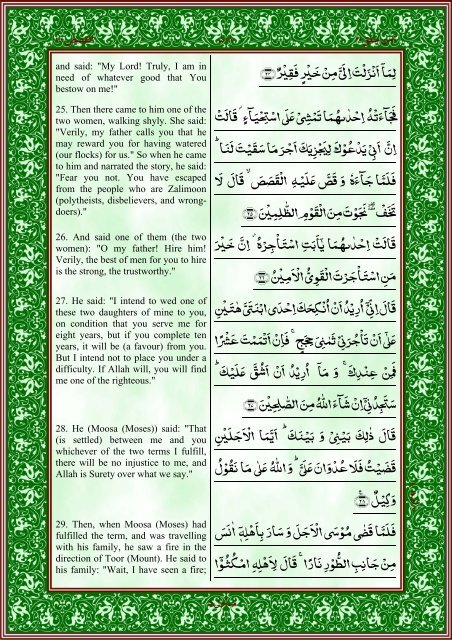 and said: "My Lord! Truly, I am in
need of whatever good that You
bestow on me!"
25. Then there came to him one of the
two women, walking shyly. She said:
"Verily, my father calls you that he
may reward you for having watered
(our flocks) for us." So when he came
to him and narrated the story, he said:
"Fear you not. You have escaped
from the people who are Zalimoon
(polytheists, disbelievers, and wrong-
doers)."
26. And said one of them (the two
women): "O my father! Hire him!
Verily, the best of men for you to hire
is the strong, the trustworthy."
27. He said: "I intend to wed one of
these two daughters of mine to you,
on condition that you serve me for
eight years, but if you complete ten
years, it will be (a favour) from you.
But I intend not to place you under a
difficulty. If Allah will, you will find
me one of the righteous."
28. He (Moosa (Moses)) said: "That
(is settled) between me and you
whichever of the two terms I fulfill,
there will be no injustice to me, and
Allah is Surety over what we say."
29. Then, when Moosa (Moses) had
fulfilled the term, and was travelling
with his family, he saw a fire in the
direction of Toor (Mount). He said to
his family: "Wait, I have seen a fire;
لِمَاۤ اَنْزَلْتَ اِلَیَّ مِنْ خَیْرٍ فَقِیْرٌ ﴿۲۴﴾
فَجَآءَتْهُ اِحْدٰىهُمَا تَمْشِیْ عَلَی اسْتِحْیَآءٍ ۫ قَالَتْ
اِنَّ اَبِیْ یَدْعُوْكَ لِیَجْزِیَكَ اَجْرَ مَا سَقَیْتَ لَنَا ؕ
فَلَمَّا جَآءَهٗ وَ قَصَّ عَلَیْهِ الْقَصَصَ ۙ قَالَ لَا
تَخَفْ ۫ نَجَوْتَ مِنَ الْقَوْمِ الظّٰلِمِیْنَ ﴿۲۵﴾
قَالَتْ اِحْدٰىهُمَا یٰۤاَبَتِ اسْتَاْجِرْهُ ۫ اِنَّ خَیْرَ
مَنِ اسْتَاْجَرْتَ الْقَوِیُّ الْاَمِیْنُ ﴿۲۶﴾
قَالَ اِنِّیْۤ اُرِیْدُ اَنْ اُنْكِحَكَ اِحْدَی ابْنَتَیَّ هٰتَیْنِ
عَلٰۤی اَنْ تَاْجُرَنِیْ ثَمٰنِیَ حِجَجٍ ۚ فَاِنْ اَتْمَمْتَ عَشْرًا
فَمِنْ عِنْدِكَ ۚ وَ مَاۤ اُرِیْدُ اَنْ اَشُقَّ عَلَیْكَ ؕ
سَتَجِدُنِیْۤ اِنْ شَآءَ اللّٰهُ مِنَ الصّٰلِحِیْنَ ﴿۲۷﴾
قَالَ ذٰلِكَ بَیْنِیْ وَ بَیْنَكَ ؕ اَیَّمَا الْاَجَلَیْنِ
قَضَیْتُ فَلَا عُدْوَانَ عَلَیَّ ؕ وَ اللّٰهُ عَلٰی مَا نَقُوْلُ
وَكِیْلٌ ﴿۲۸﴾
فَلَمَّا قَضٰی مُوْسَی الْاَجَلَ وَ سَارَ بِاَهْلِهٖۤ اٰنَسَ
مِنْ جَانِبِ الطُّوْرِ نَارًا ۚ قَالَ لِاَهْلِهِ امْكُثُوْۤا